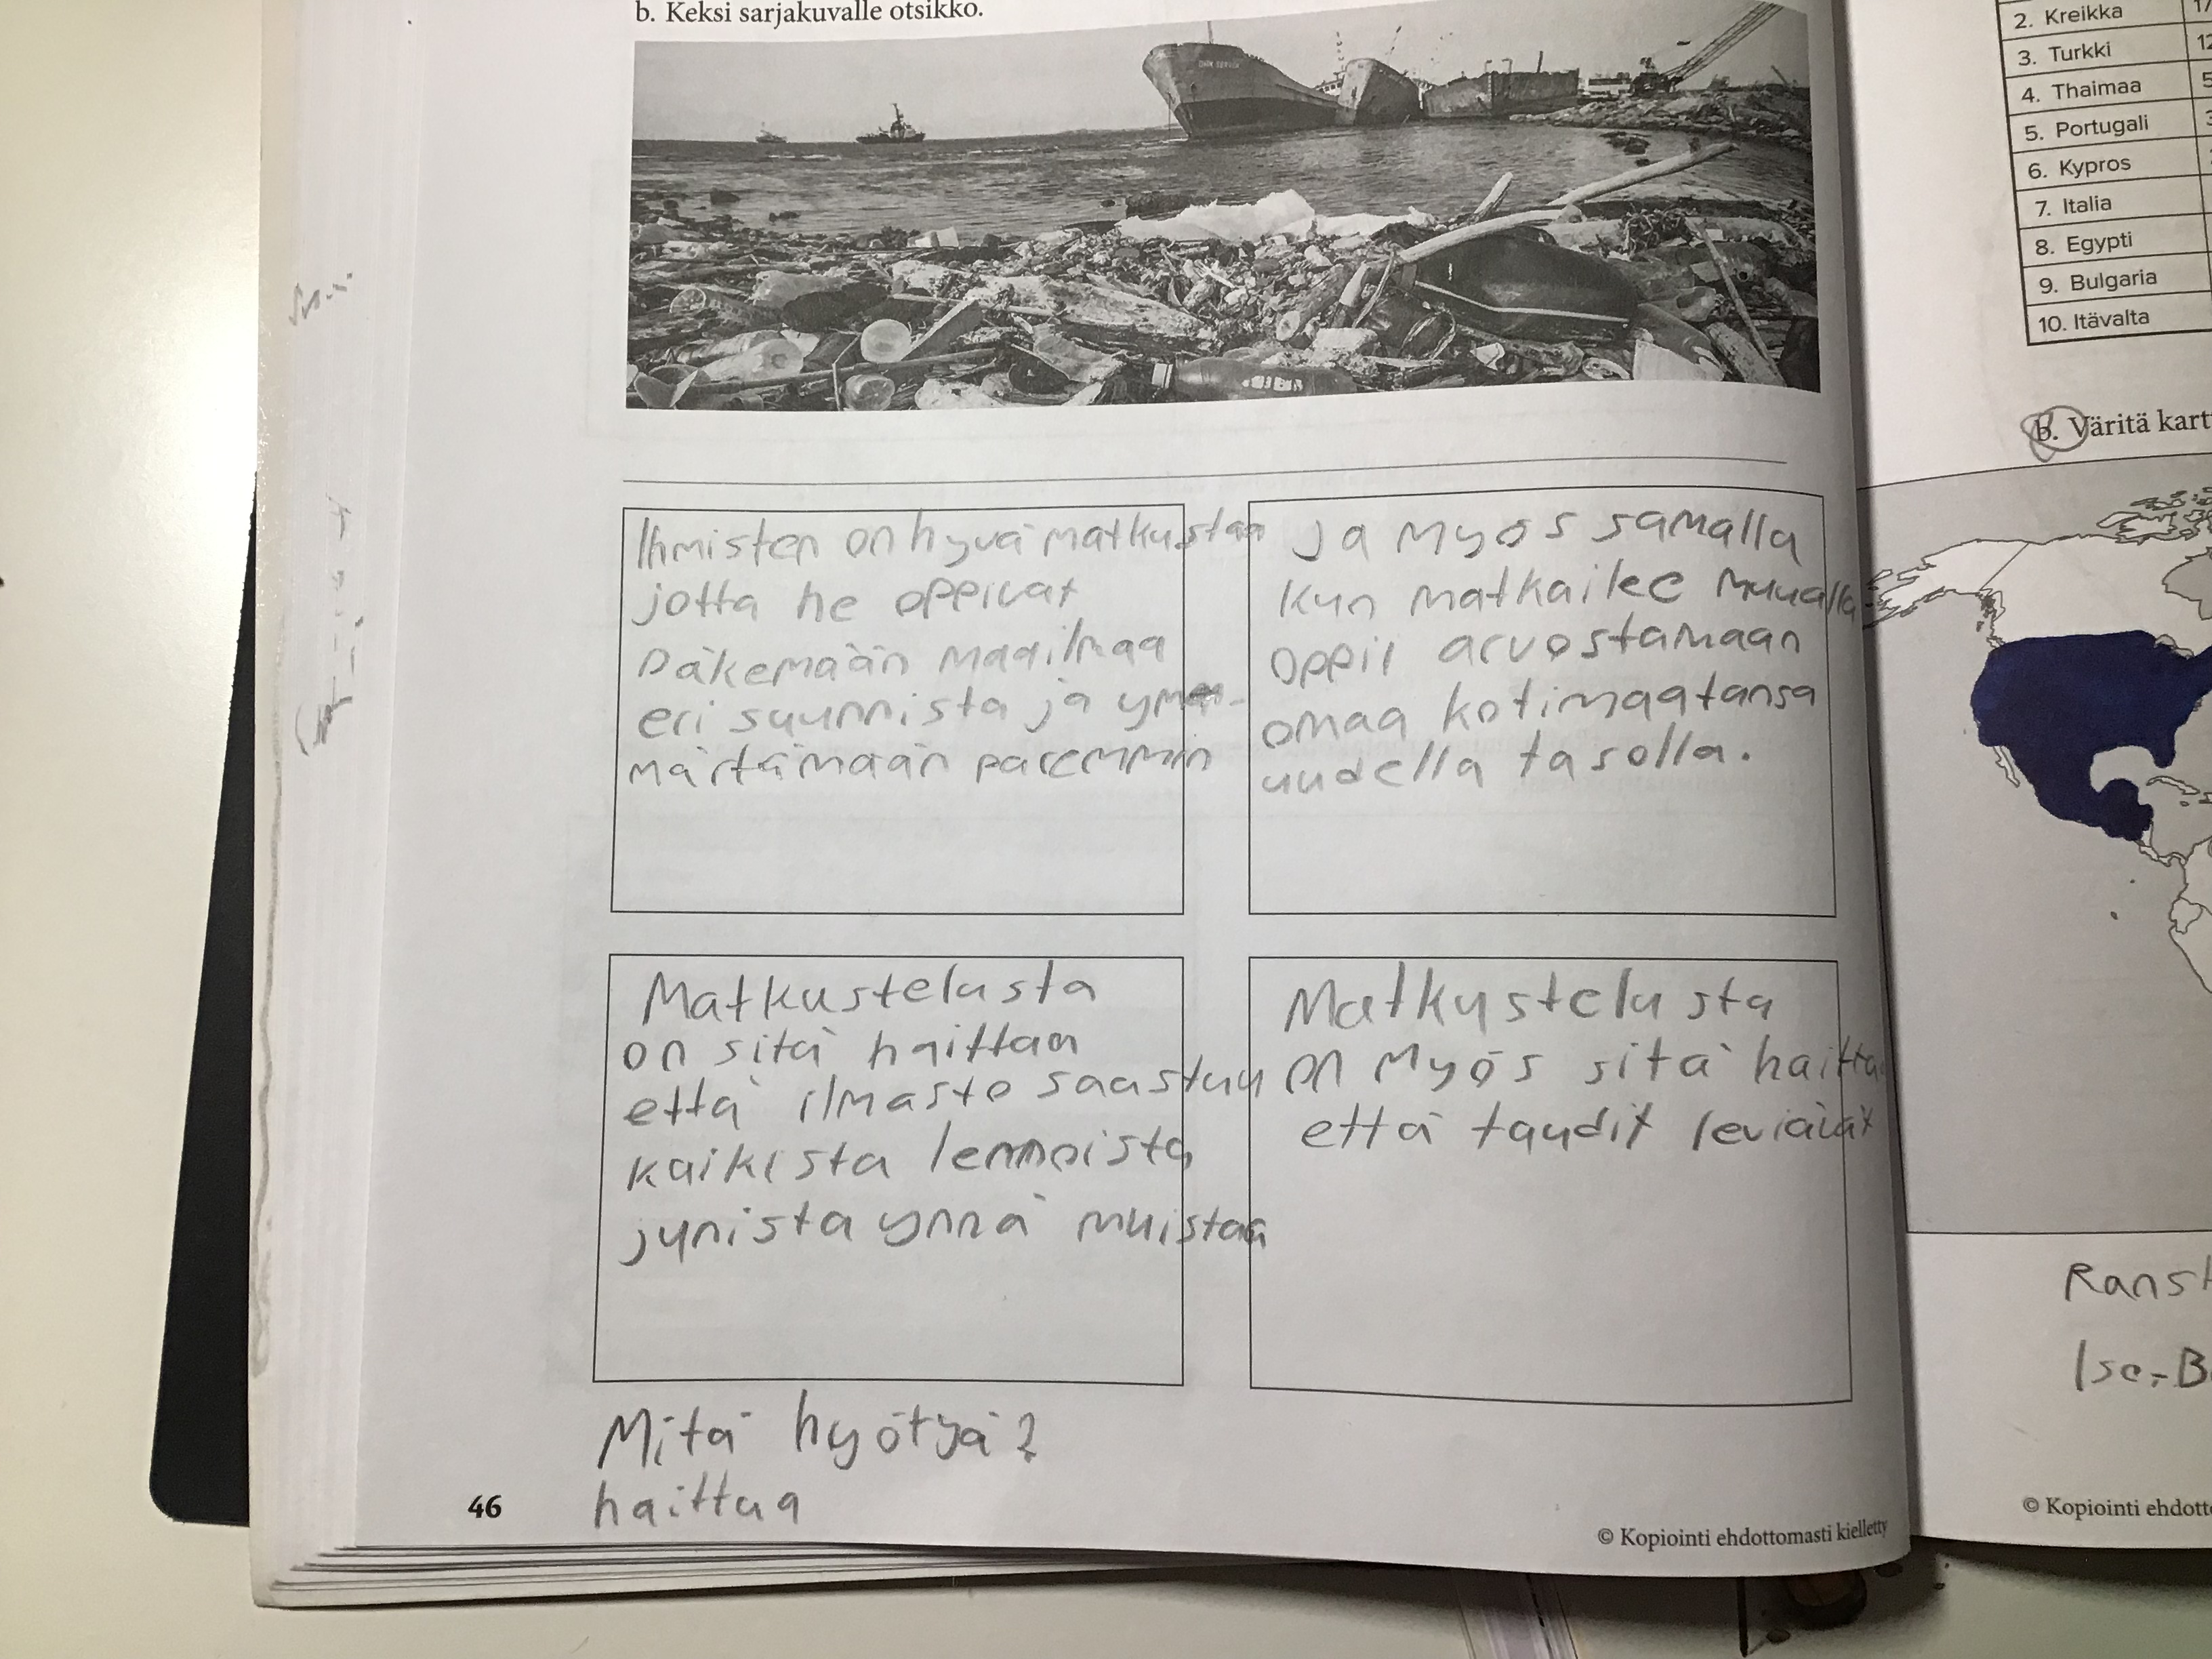 b. Keksi sarjakuvalle otsikko.
Ihmisten on hyvä matkustaa
jotta he oppivat
näkemään maailmaa
eri suunnista ja ymm-
märtämään paremmin
ja myös samalla
kun matkailee muualla
oppii arvostamaan
omaa kotimaatansa
uudella tasolla.
Matkustelusta
on sitä haittaa
että ilmasto saastuu
kaikista lennoista,
junista ynnä muistaa
Matkustelusta
on myös sitä haittaa
että taudit leviävät
Mitä hyötyä?
haittaa
46
© Kopiointi ehdottomasti kielletty
2. Kreikka
3. Turkki
4. Thaimaa
5. Portugali
6. Kypros
7. Italia
8. Egypti
9. Bulgaria
10. Itävalta
b. Väritä kart
Ransk
Iso-B
© Kopiointi ehdott